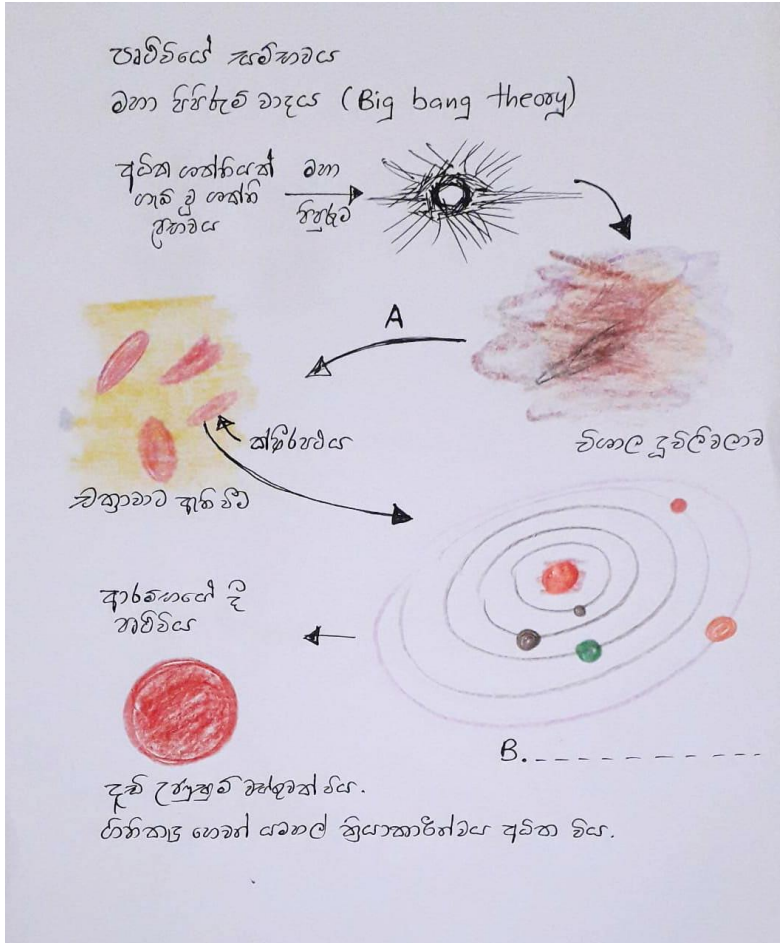 පෘථිවියේ සම්භවය
මහා පිපිරුම් වාදය (Big bang theory)
අධික ශක්තියක්
ගැබ් වූ ශක්ති
ප්‍රභවය
මහා
පිපුරුම
A
විශාල දූවිලිවලාව
ක්ෂීරපථය
චක්‍රාවාට ඇති වීම
ආරම්භයේ දී
පෘථිවිය
B. _ _ _ _ _ _ _ _ _ _ _
දැඩි උණුසුම් වස්තුවක් විය.
ගිනිකඳු හෙවත් යමහල් ක්‍රියාකාරීත්වය අධික විය.